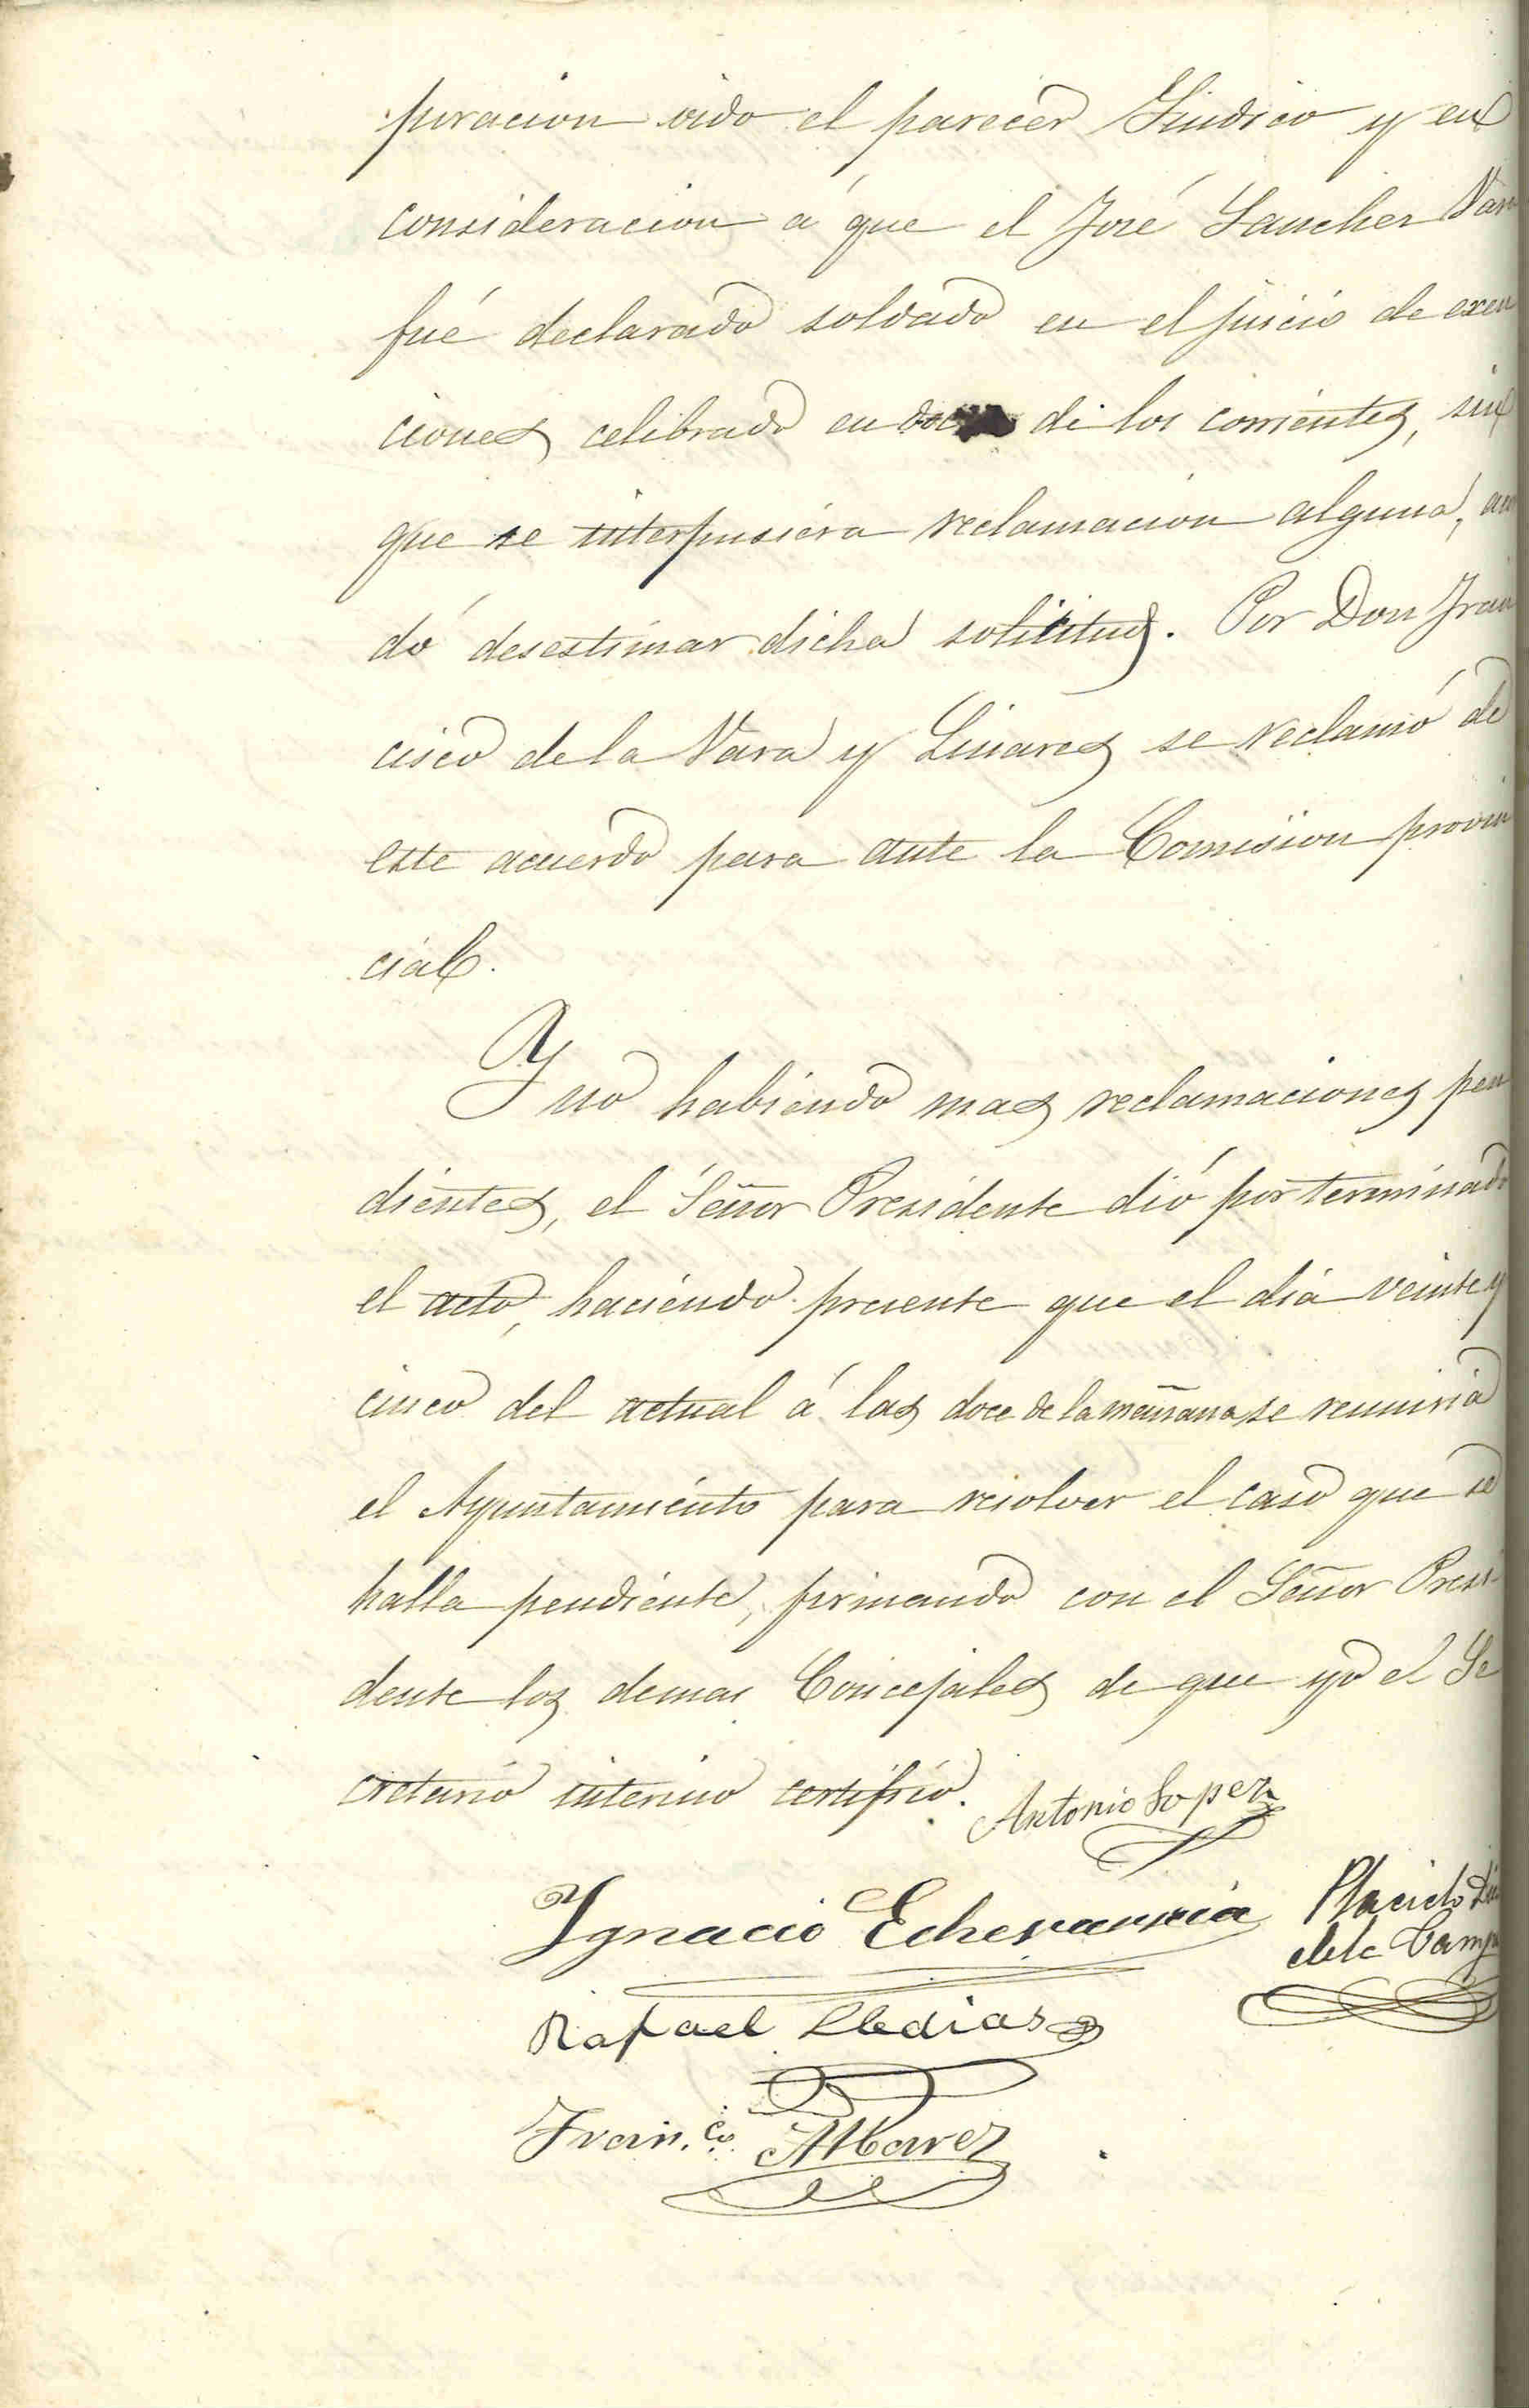 puracion oido el parecer Sindico y en
consideracion á que el José Sanchez Var
fué declarado soldado en el juicio de exen
ciones celebrado en doce de los corrientes, sin
que se interpusiera reclamacion alguna, acor
dó desestimar dicha solicitud. Por Don Fran
cisco de la Vara y Linares se reclamó de
este acuerdo para ante la Comision provin
cial.
Y no habiendo mas reclamaciones pen
dientes, el Señor Presidente dió por terminado
el acto, haciendo presente que el dia veinte y
cinco del actual á las doce de la mañana se reuniria
el Ayuntamiento para resolver el caso que se
halla pendiente, firmando con el Señor Presi-
dente los demas Concejales de que yo el Se
cretario interino certifico.
Antonio Lopez
Ignacio Echevarria Placido
de la Camp
Rafael
Fran.co Alvarez